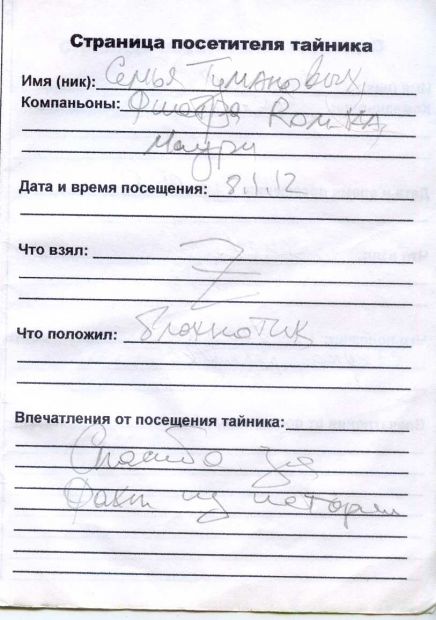 Страница посетителя тайника
Имя (ник): Семья Тумановых,
Компаньоны: Rом-КА,
Маури
Дата и время посещения: 8.1.12
Что взял: Z
Что положил: блокнотик
Впечатления от посещения тайника:
Спасибо за
Факт из истории